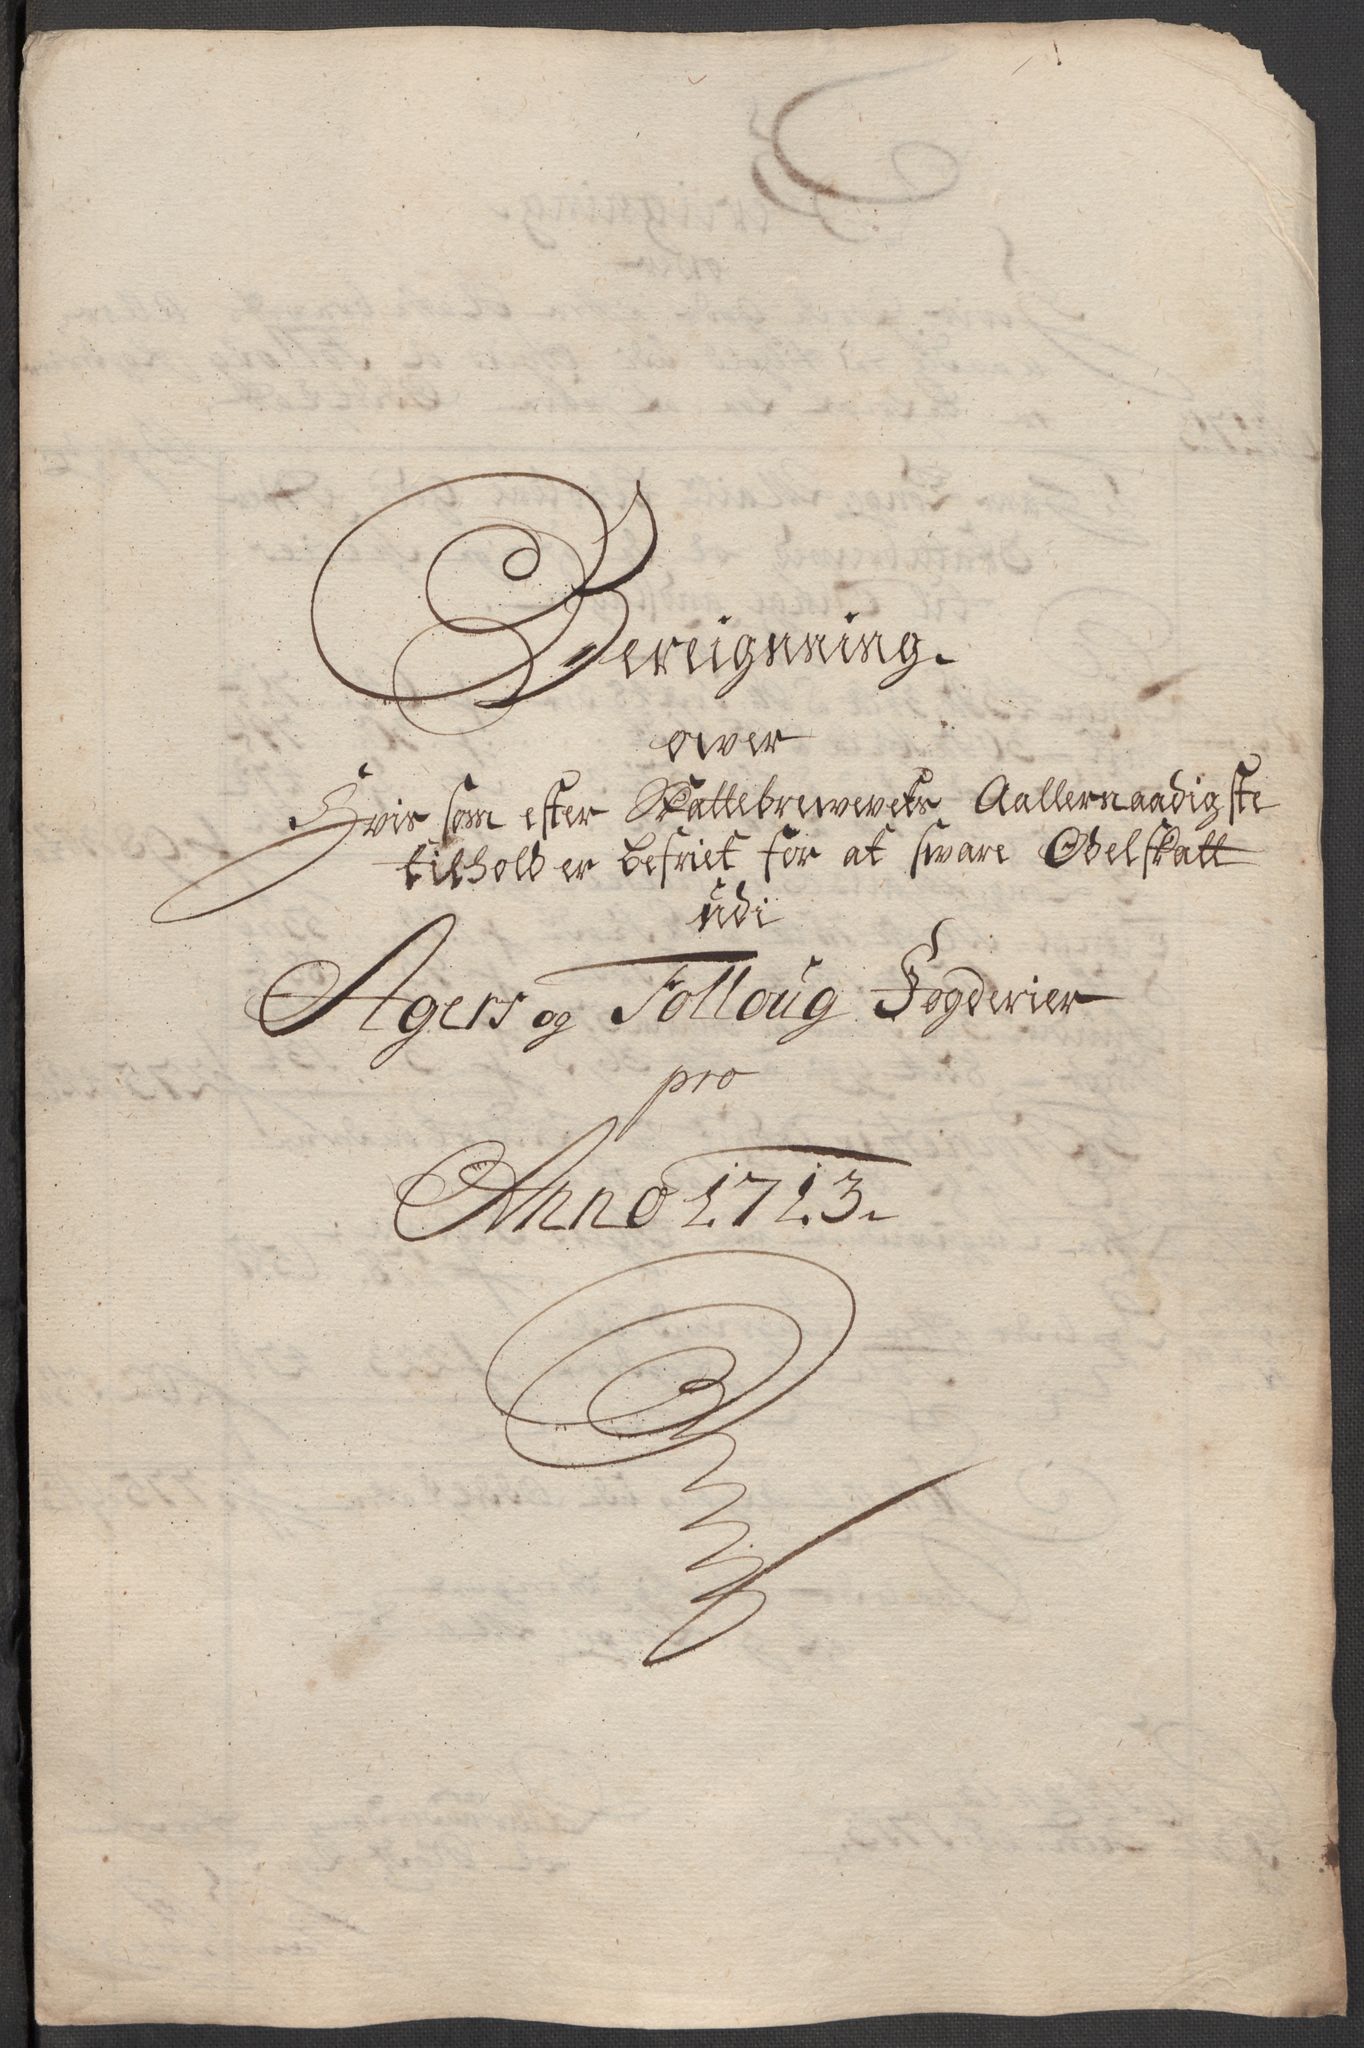 Bereignning.
ower
Hvis som efter Skattebrewevets Aallernaadigste
tilhold er befriet for at sware Odelskatt
udi
Agers og Folloug Fogderier
pro
Anno 1713.